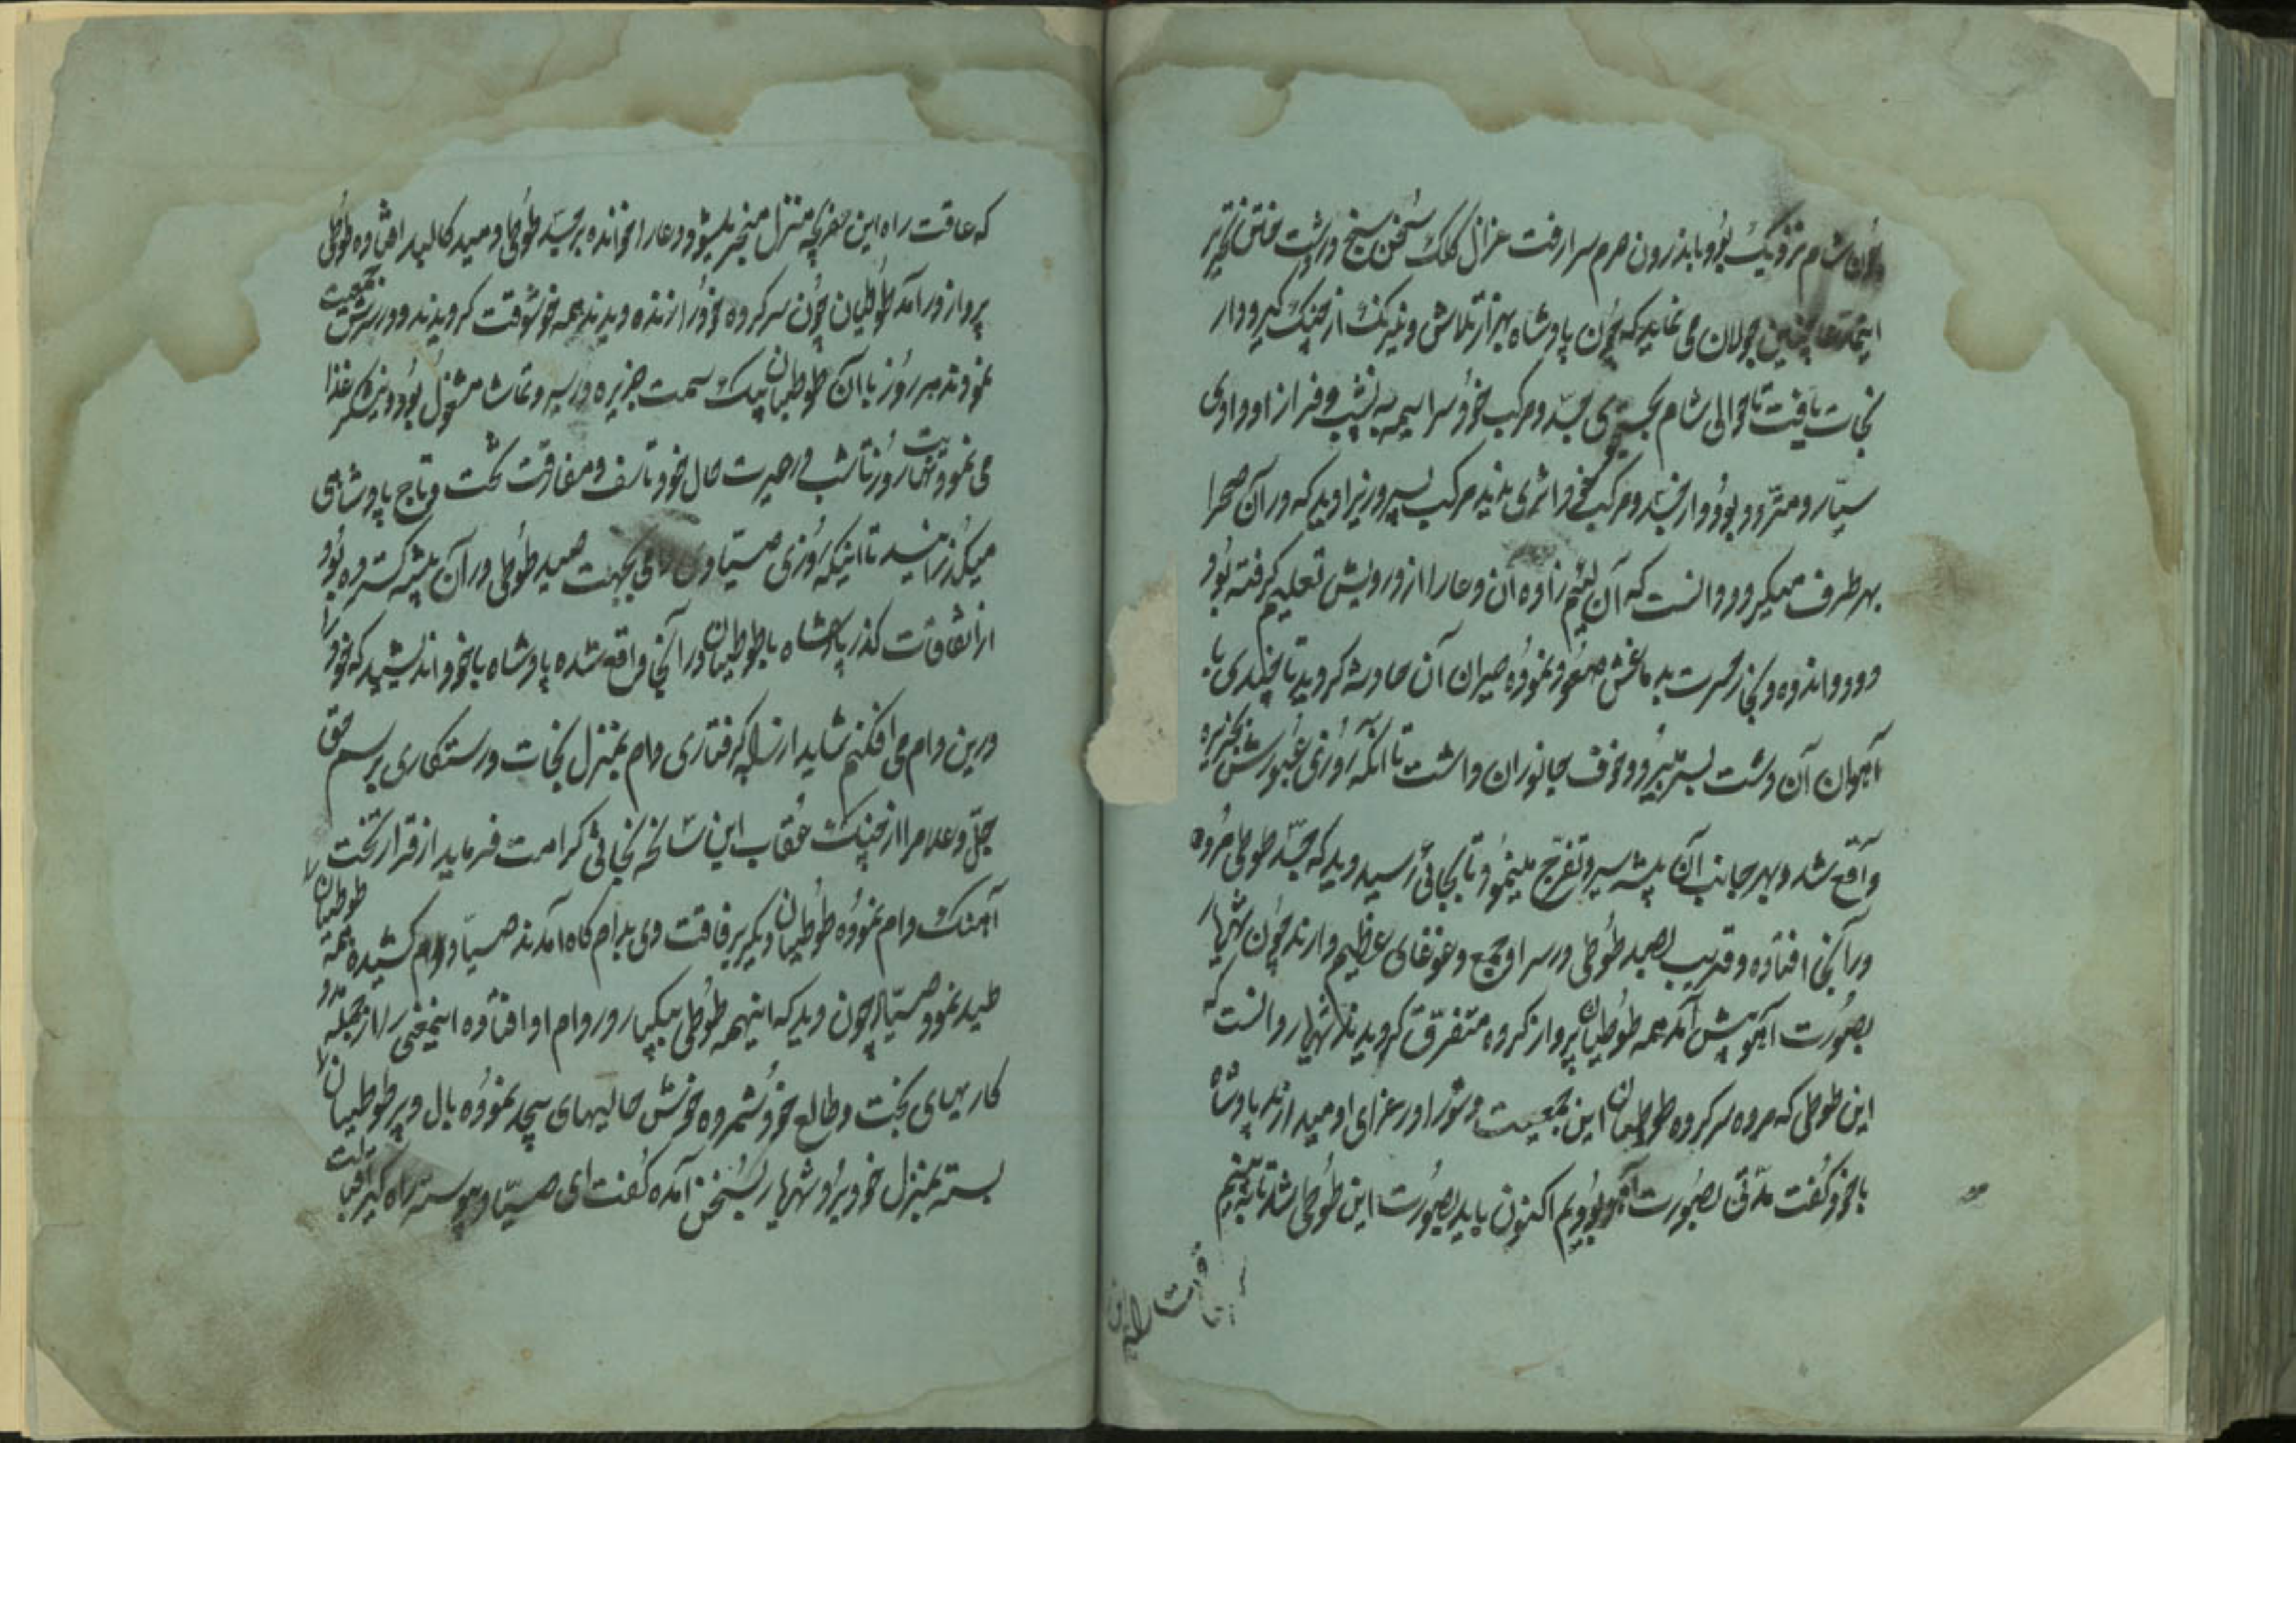 چون شام نزدیک بود باندرون حرم سرا رفت غزال کلک سخن سنج در دشت ختن تحریر
اینمدعا چنین جولان می نماید که چون پادشاه بهزار تلاش و نیرنک از چنک کیر و دار
نجات یافت تا حوالی شام بجستجوی جسد و مرکب خود سراسیمه به نشیب و فراز او وادی
سیار و متردد بود و از جسد و مرکب خود اثری ندید مرکب پسر وزیر را دید که در آن صحرا
بهر طرف میکردد دانست که آن لئیم زاده آن دعا را از درویش تعلیم کرفته بود
دود اندوه و بخار حسرت بدماغش صعود نموده حیران آن حادثه کردید تا چندی با
آهوان آن دشت بسر میبرد و خوف جانوران داشت تا آنکه روزی عبورش بجزیره
واقع شد و بهر جانب آن بیشه سیر و تفرج مینمود تا بجائی رسید دید که جسد طوطی مرده
در آنجا افتاده و قریب بصد طوطی در سر او جمع و غوغای عظیم دارند چون شهریار
بصورت آهو پیش آمد همه طوطیان پرواز کرده متفرق کردیدند شهریار دانست که
این طوطی که مرده سرکرده طوطیان این جمعیت و شور را در عزای او میدارند پادشاه
با خود کفت مدتی بصورت آهو بودیم اکنون باید بصورت این طوطی شد تا به بینم
که عاقت راه این
که عاقت راه این سفر بچه منزل منجر میشود دعا را خوانده بر جسد طوطی دمید کالبد افتاده طوطی
پرواز در آمد طوطیان چون سرکرده خود را زنده دیدند همه خوشوقت کردیدند و در سرش جمعیت
نمودند هر روز با آن طوطیان بیک سمت جزیره در سیر و تماشا مشغول بود و نیشکر غذا
می نمود و تمام روز تا شب در حیرت حال خود و تاسف و مفارقت تخت و تاج پادشاهی
میکذرانید تا اینکه روزی صیادی دامی بجهت صید طوطی در آن بیشه کسترده بود
از اتفاقات کذر پادشاه با طوطیان در آنجا واقع شده پادشاه با خود اندیشید که خود را
درین دام می افکنم شاید از راه کرفتاری دام بمنزل نجات و رستکاری برسم حق
جل و علا مرا از چنک عقاب این سانحه نجاتی کرامت فرماید از قرار تخت
آهنک دام نموده طوطیان دیکر برفاقت وی بدام کاه آمدند صیاد دام کشیده همه طوطیان را
صید نمود صیاد چون دید که اینهمه طوطی بیکبار در دام او افتاده اینمعنی را از جمله مدد
کاریهای بخت و طالع خود شمرده خوش حالیهای بیحد نموده بال و پر طوطیان را
بسته بمنزل خود برد شهریار بسخن آمده کفت ای صیاد پیوسته راه کیر اقبالت